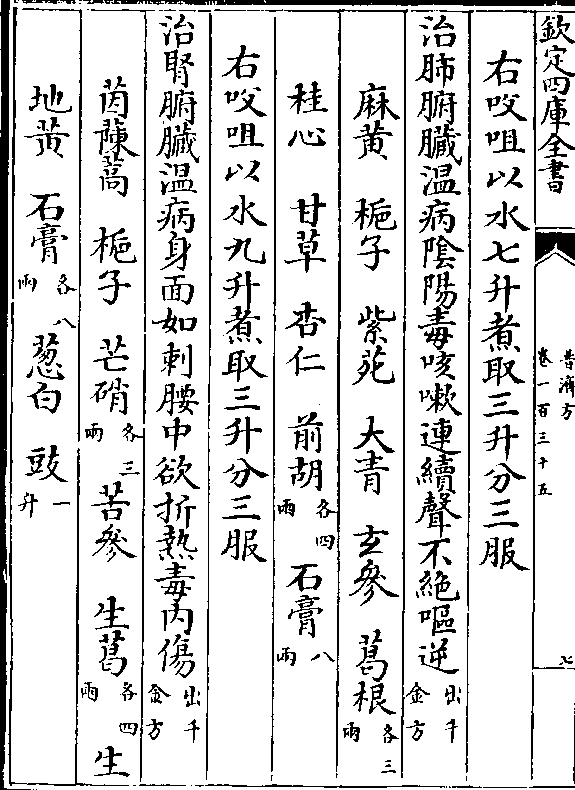 欽定四庫全書
普濟方
卷一百三十五
七
右㕮咀以水七升煮取三升分三服
治肺腑臟温病隂陽毒咳嗽連續聲不絶嘔逆出千金方
麻黄　梔子　紫苑　大青　玄參　葛根各三兩
桂心　甘草　杏仁　前胡各四兩　石膏八兩
右㕮咀以水九升煮取三升分三服
治腎腑臟温病身面如刺腰中欲折熱毒内傷出千金方
茵蔯蒿　梔子　芒硝各三兩　苦參　生葛各四兩　生
地黄　石膏各八兩　葱白　豉一升